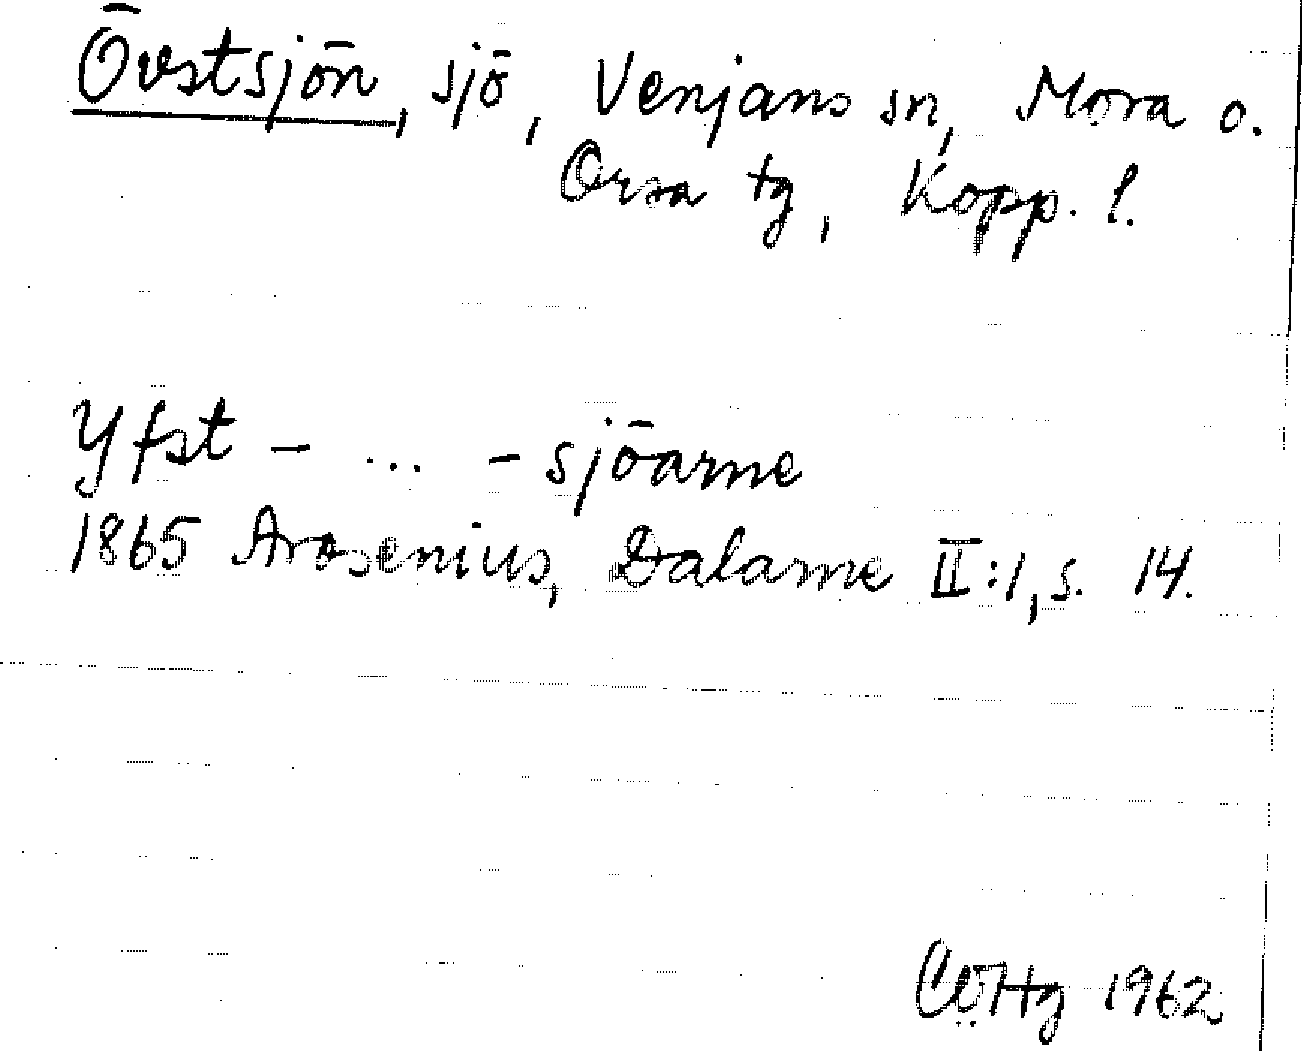 Övstsjön, sjö, Venjans sn, Mora o.
Orsa tg, Kopp. l.
Yfst - ... - sjöarne
1865 Arosenius, Dalarne II:1, s. 14.
1962